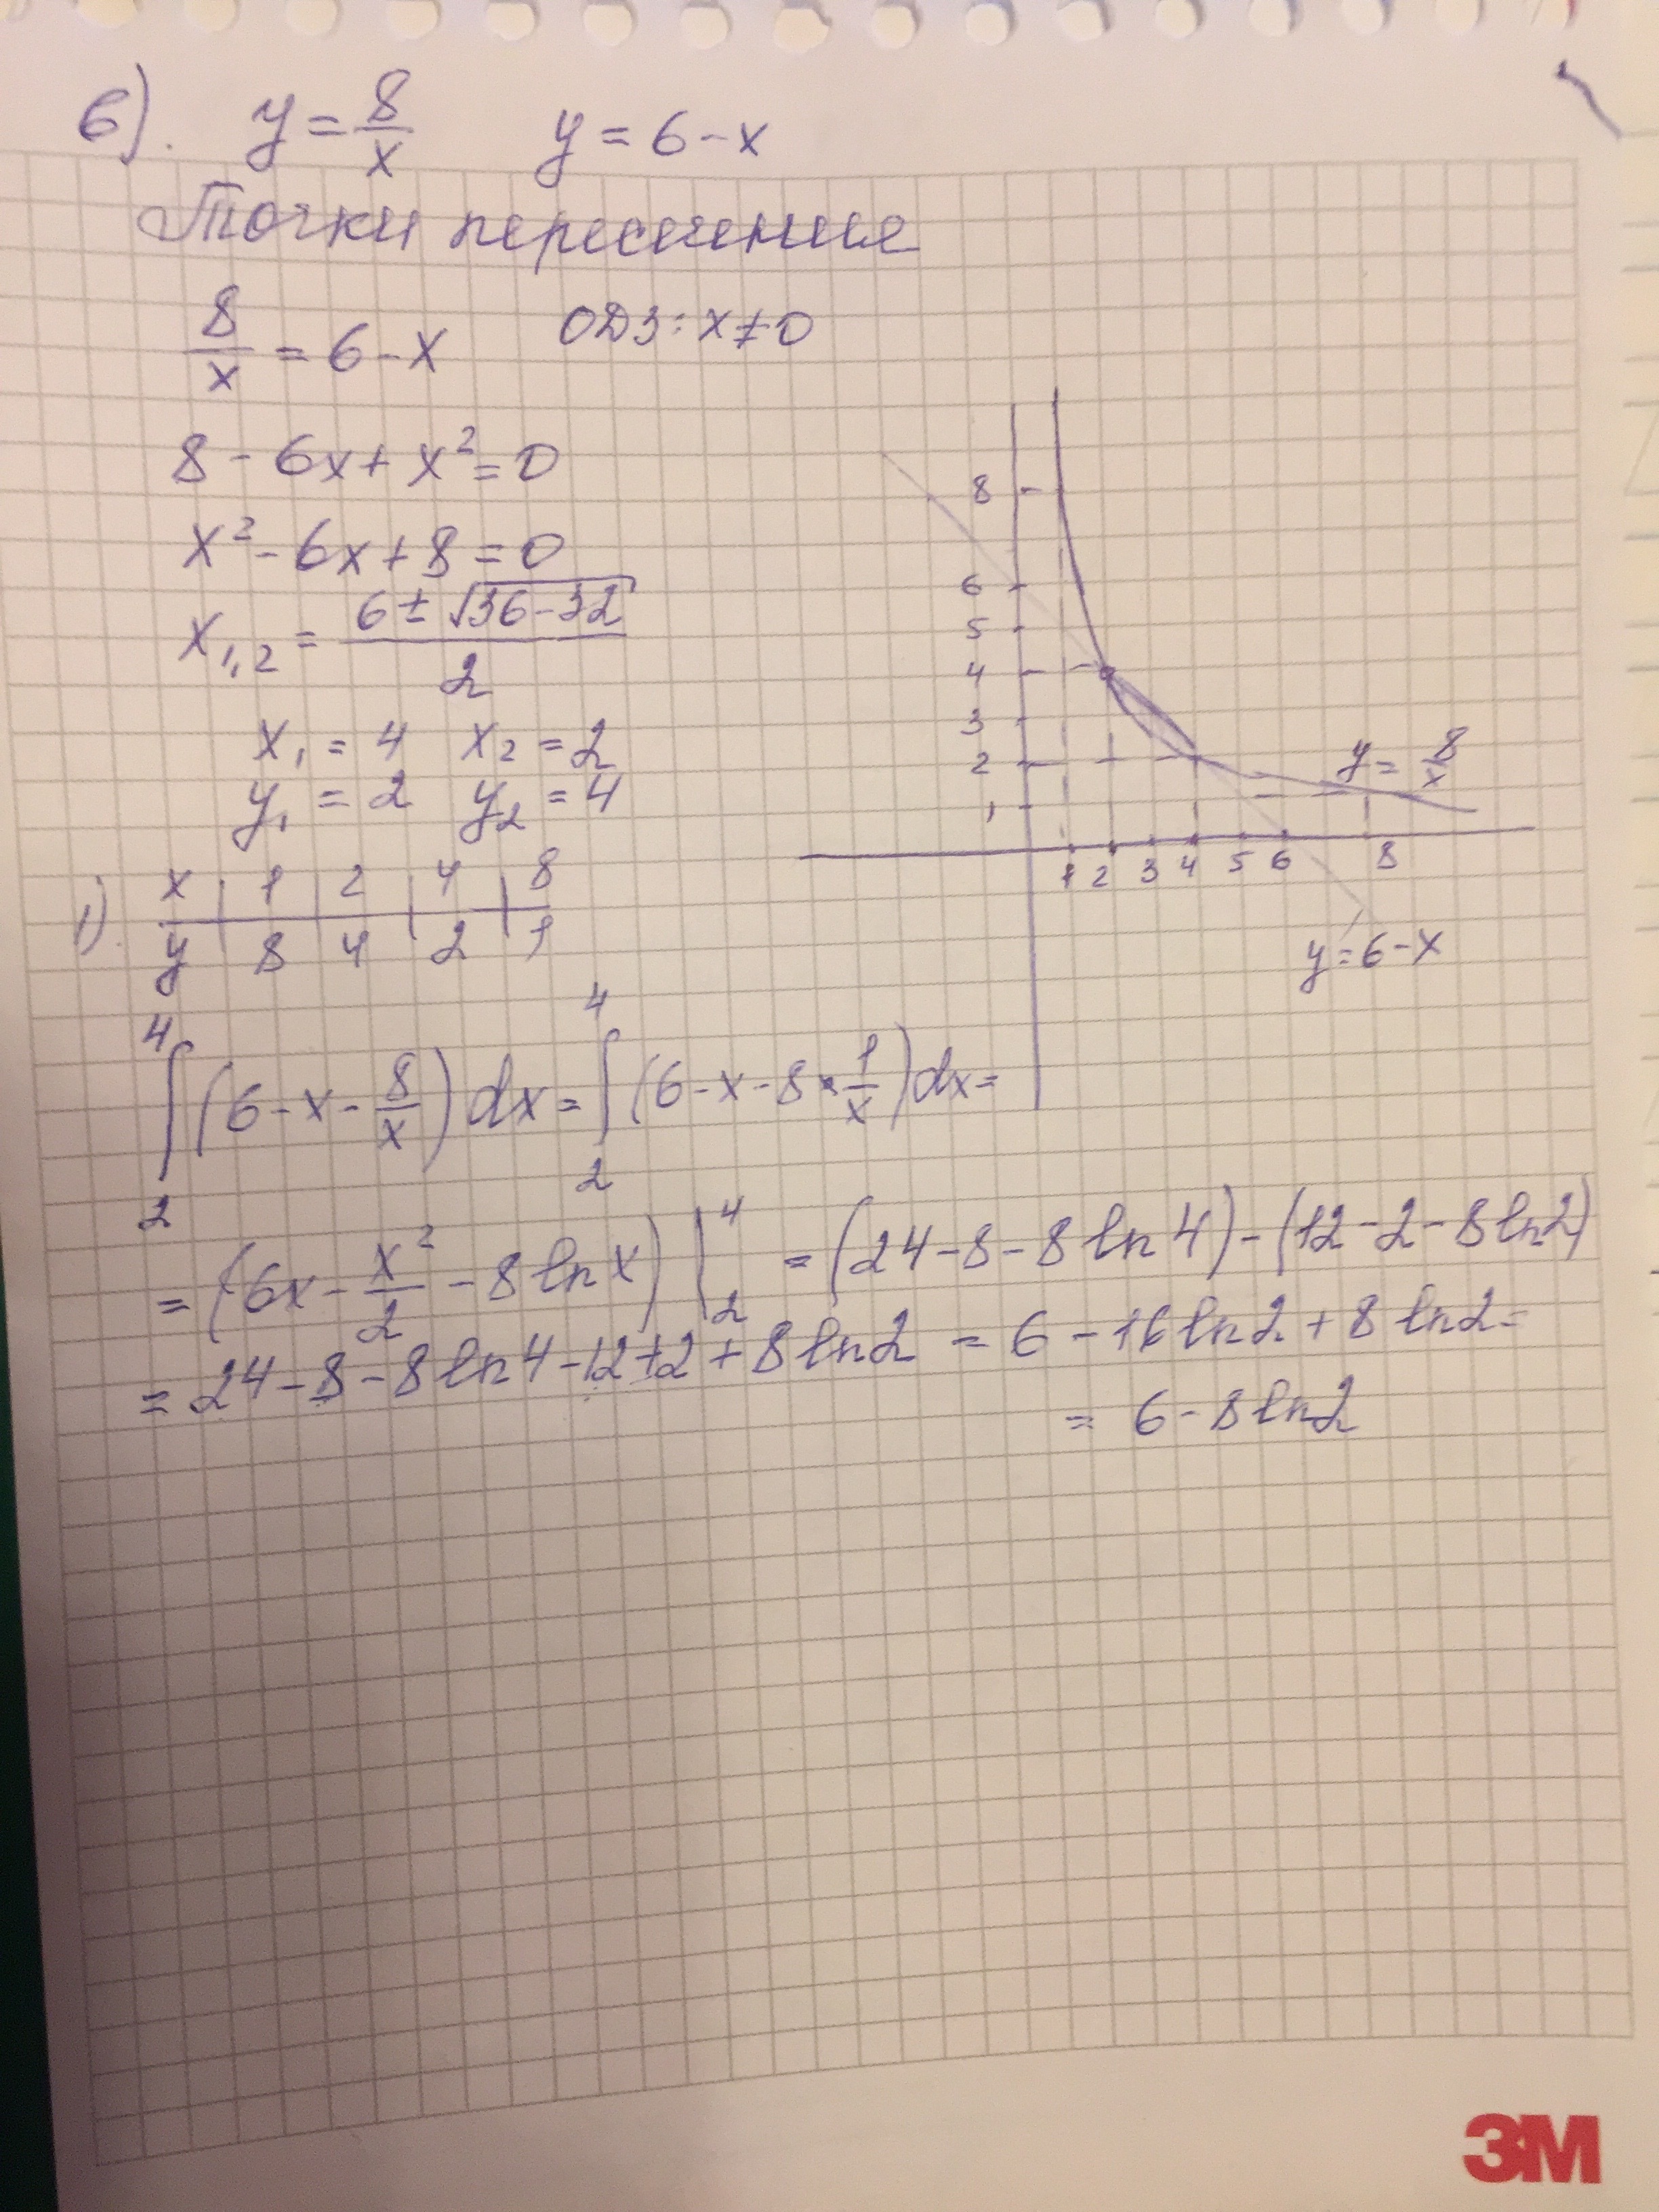 в). y = 8/x y = 6 - x
Точки пересечения
8/x = 6 - x ОДЗ: x ≠ 0
8 - 6x + x² = 0
x² - 6x + 8 = 0
x₁,₂ = (6 ± √(36 - 32))/2
x₁ = 4 x₂ = 2
y₁ = 2 y₂ = 4
1). x | 1 | 2 | 4 | 8
y | 8 | 4 | 2 | 1
8
6
5
4
3
2
1
1 2 3 4 5 6 8
y = 8/x
y = 6 - x
∫₂⁴ (6 - x - 8/x) dx = ∫₂⁴ (6 - x - 8 · 1/x) dx =
= (6x - x²/2 - 8 ln x) |₂⁴ = (24 - 8 - 8 ln 4) - (12 - 2 - 8 ln 2)
= 24 - 8 - 8 ln 4 - 12 + 2 + 8 ln 2 = 6 - 16 ln 2 + 8 ln 2 =
= 6 - 8 ln 2
3M